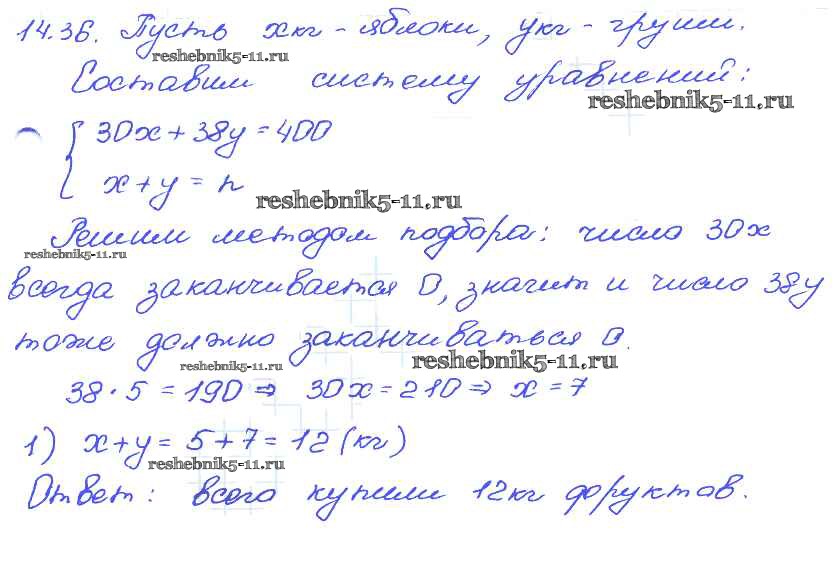 14.36. Пусть x кг - яблоки, y кг - груши.
reshebnik5-11.ru
Составим систему уравнений:
reshebnik5-11.ru
{ 30x + 38y = 400
x + y = n
reshebnik5-11.ru
Решим методом подбора: число 30x
reshebnik5-11.ru
всегда заканчивается 0, значит и число 38y
тоже должно заканчиваться 0.
reshebnik5-11.ru
reshebnik5-11.ru
38 · 5 = 190 ⇒ 30x = 210 ⇒ x = 7
1) x + y = 5 + 7 = 12 (кг)
reshebnik5-11.ru
Ответ: всего купили 12кг фруктов.